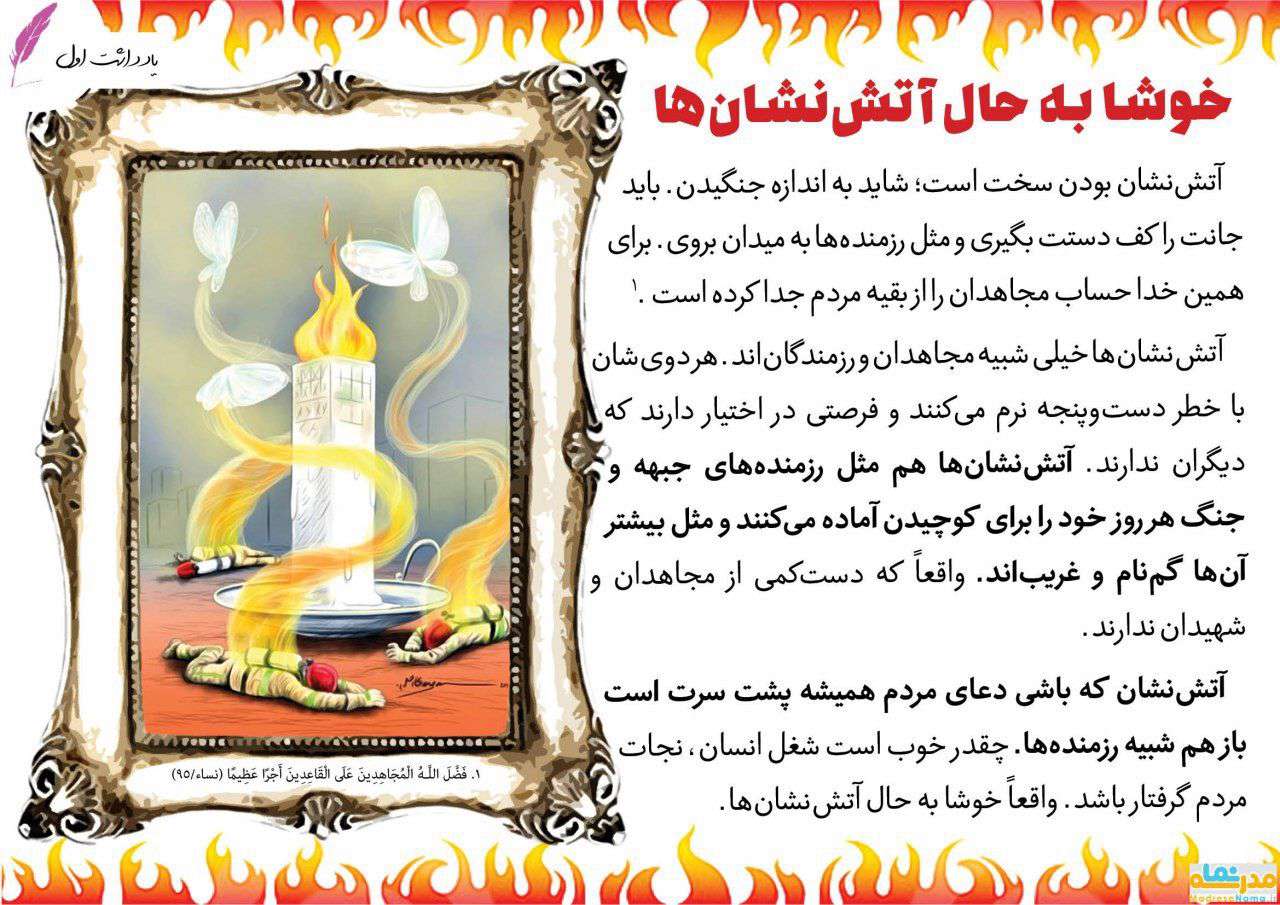 یادداشت اول
خوشا به حال آتش‌نشان‌ها
آتش‌نشان بودن سخت است؛ شاید به اندازه جنگیدن. باید
جانت را کف دستت بگیری و مثل رزمنده‌ها به میدان بروی. برای
همین خدا حساب مجاهدان را از بقیه مردم جدا کرده است .۱
آتش‌نشان‌ها خیلی شبیه مجاهدان و رزمندگان‌اند. هر دوی‌شان
با خطر دست‌وپنجه نرم می‌کنند و فرصتی در اختیار دارند که
دیگران ندارند. آتش‌نشان‌ها هم مثل رزمنده‌های جبهه و
جنگ هر روز خود را برای کوچیدن آماده می‌کنند و مثل بیشتر
آن‌ها گم‌نام و غریب‌اند. واقعاً که دست‌کمی از مجاهدان و
شهیدان ندارند.
آتش‌نشان که باشی دعای مردم همیشه پشت سرت است
باز هم شبیه رزمنده‌ها. چقدر خوب است شغل انسان، نجات
مردم گرفتار باشد. واقعاً خوشا به حال آتش‌نشان‌ها.
۱. فَضَّلَ اللَّهُ الْمُجَاهِدِينَ عَلَى الْقَاعِدِينَ أَجْرًا عَظِيمًا (نساء/۹۵)
مدرسه‌نما
MadreseNama.ir